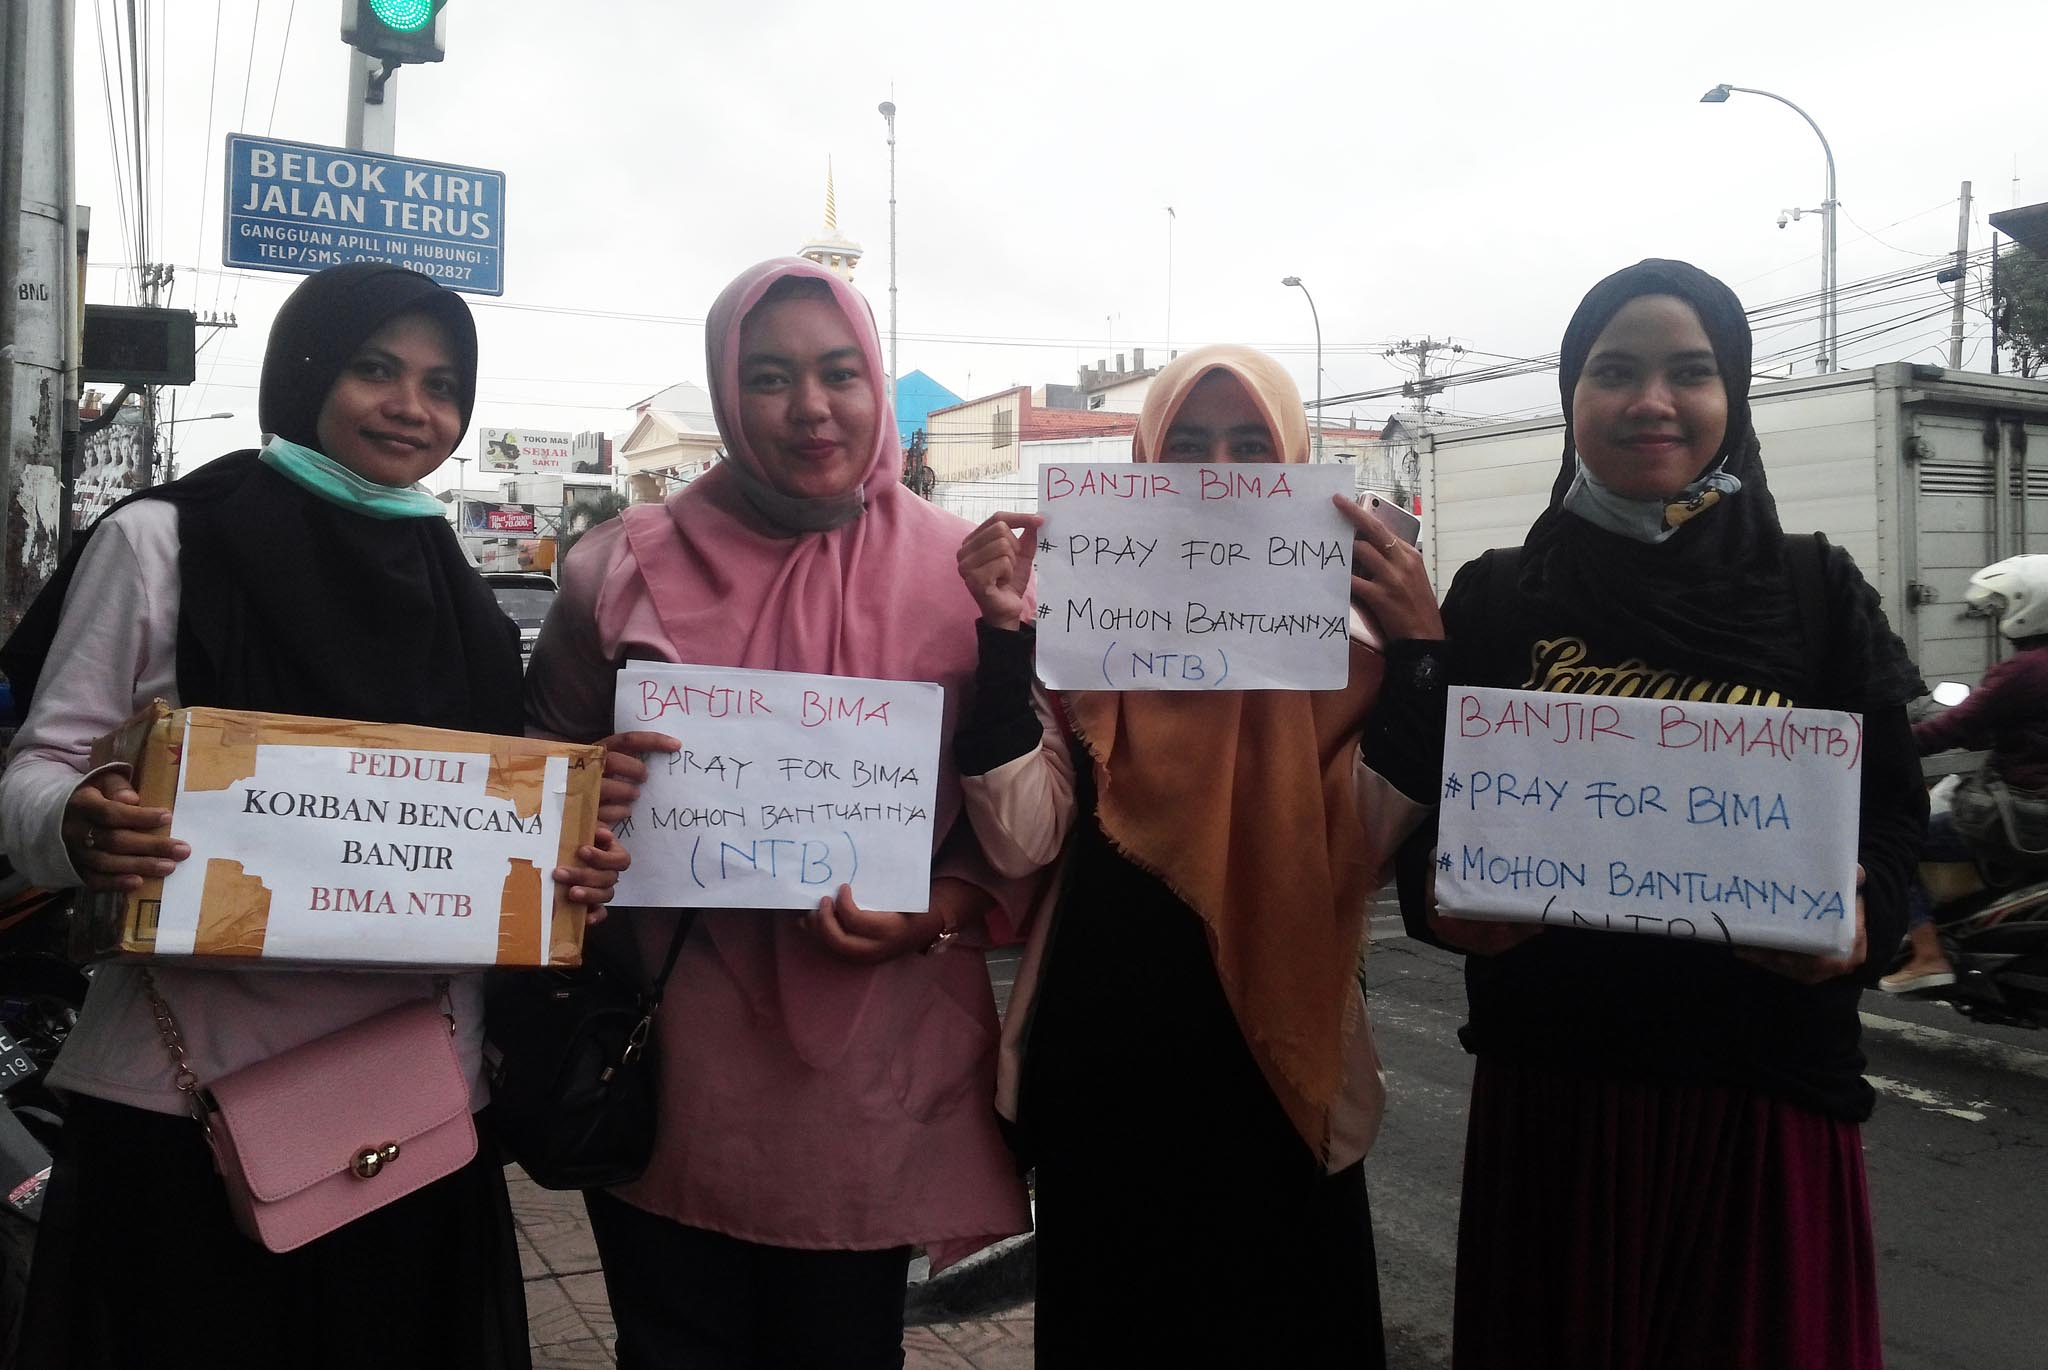 BELOK KIRI
JALAN TERUS
GANGGUAN APILL INI HUBUNGI :
TELP/SMS : 0274 8002827
BND
TOKO MAS
SEMAR
SAKTI
Rp. 70.000,-
PEDULI
KORBAN BENCANA
BANJIR
BIMA NTB
BANJIR BIMA
PRAY FOR BIMA
# MOHON BANTUANNYA
(NTB)
BANJIR BIMA
# PRAY FOR BIMA
# MOHON BANTUANNYA
(NTB)
BANJIR BIMA(NTB)
# PRAY FOR BIMA
# MOHON BANTUANNYA
(NTB)